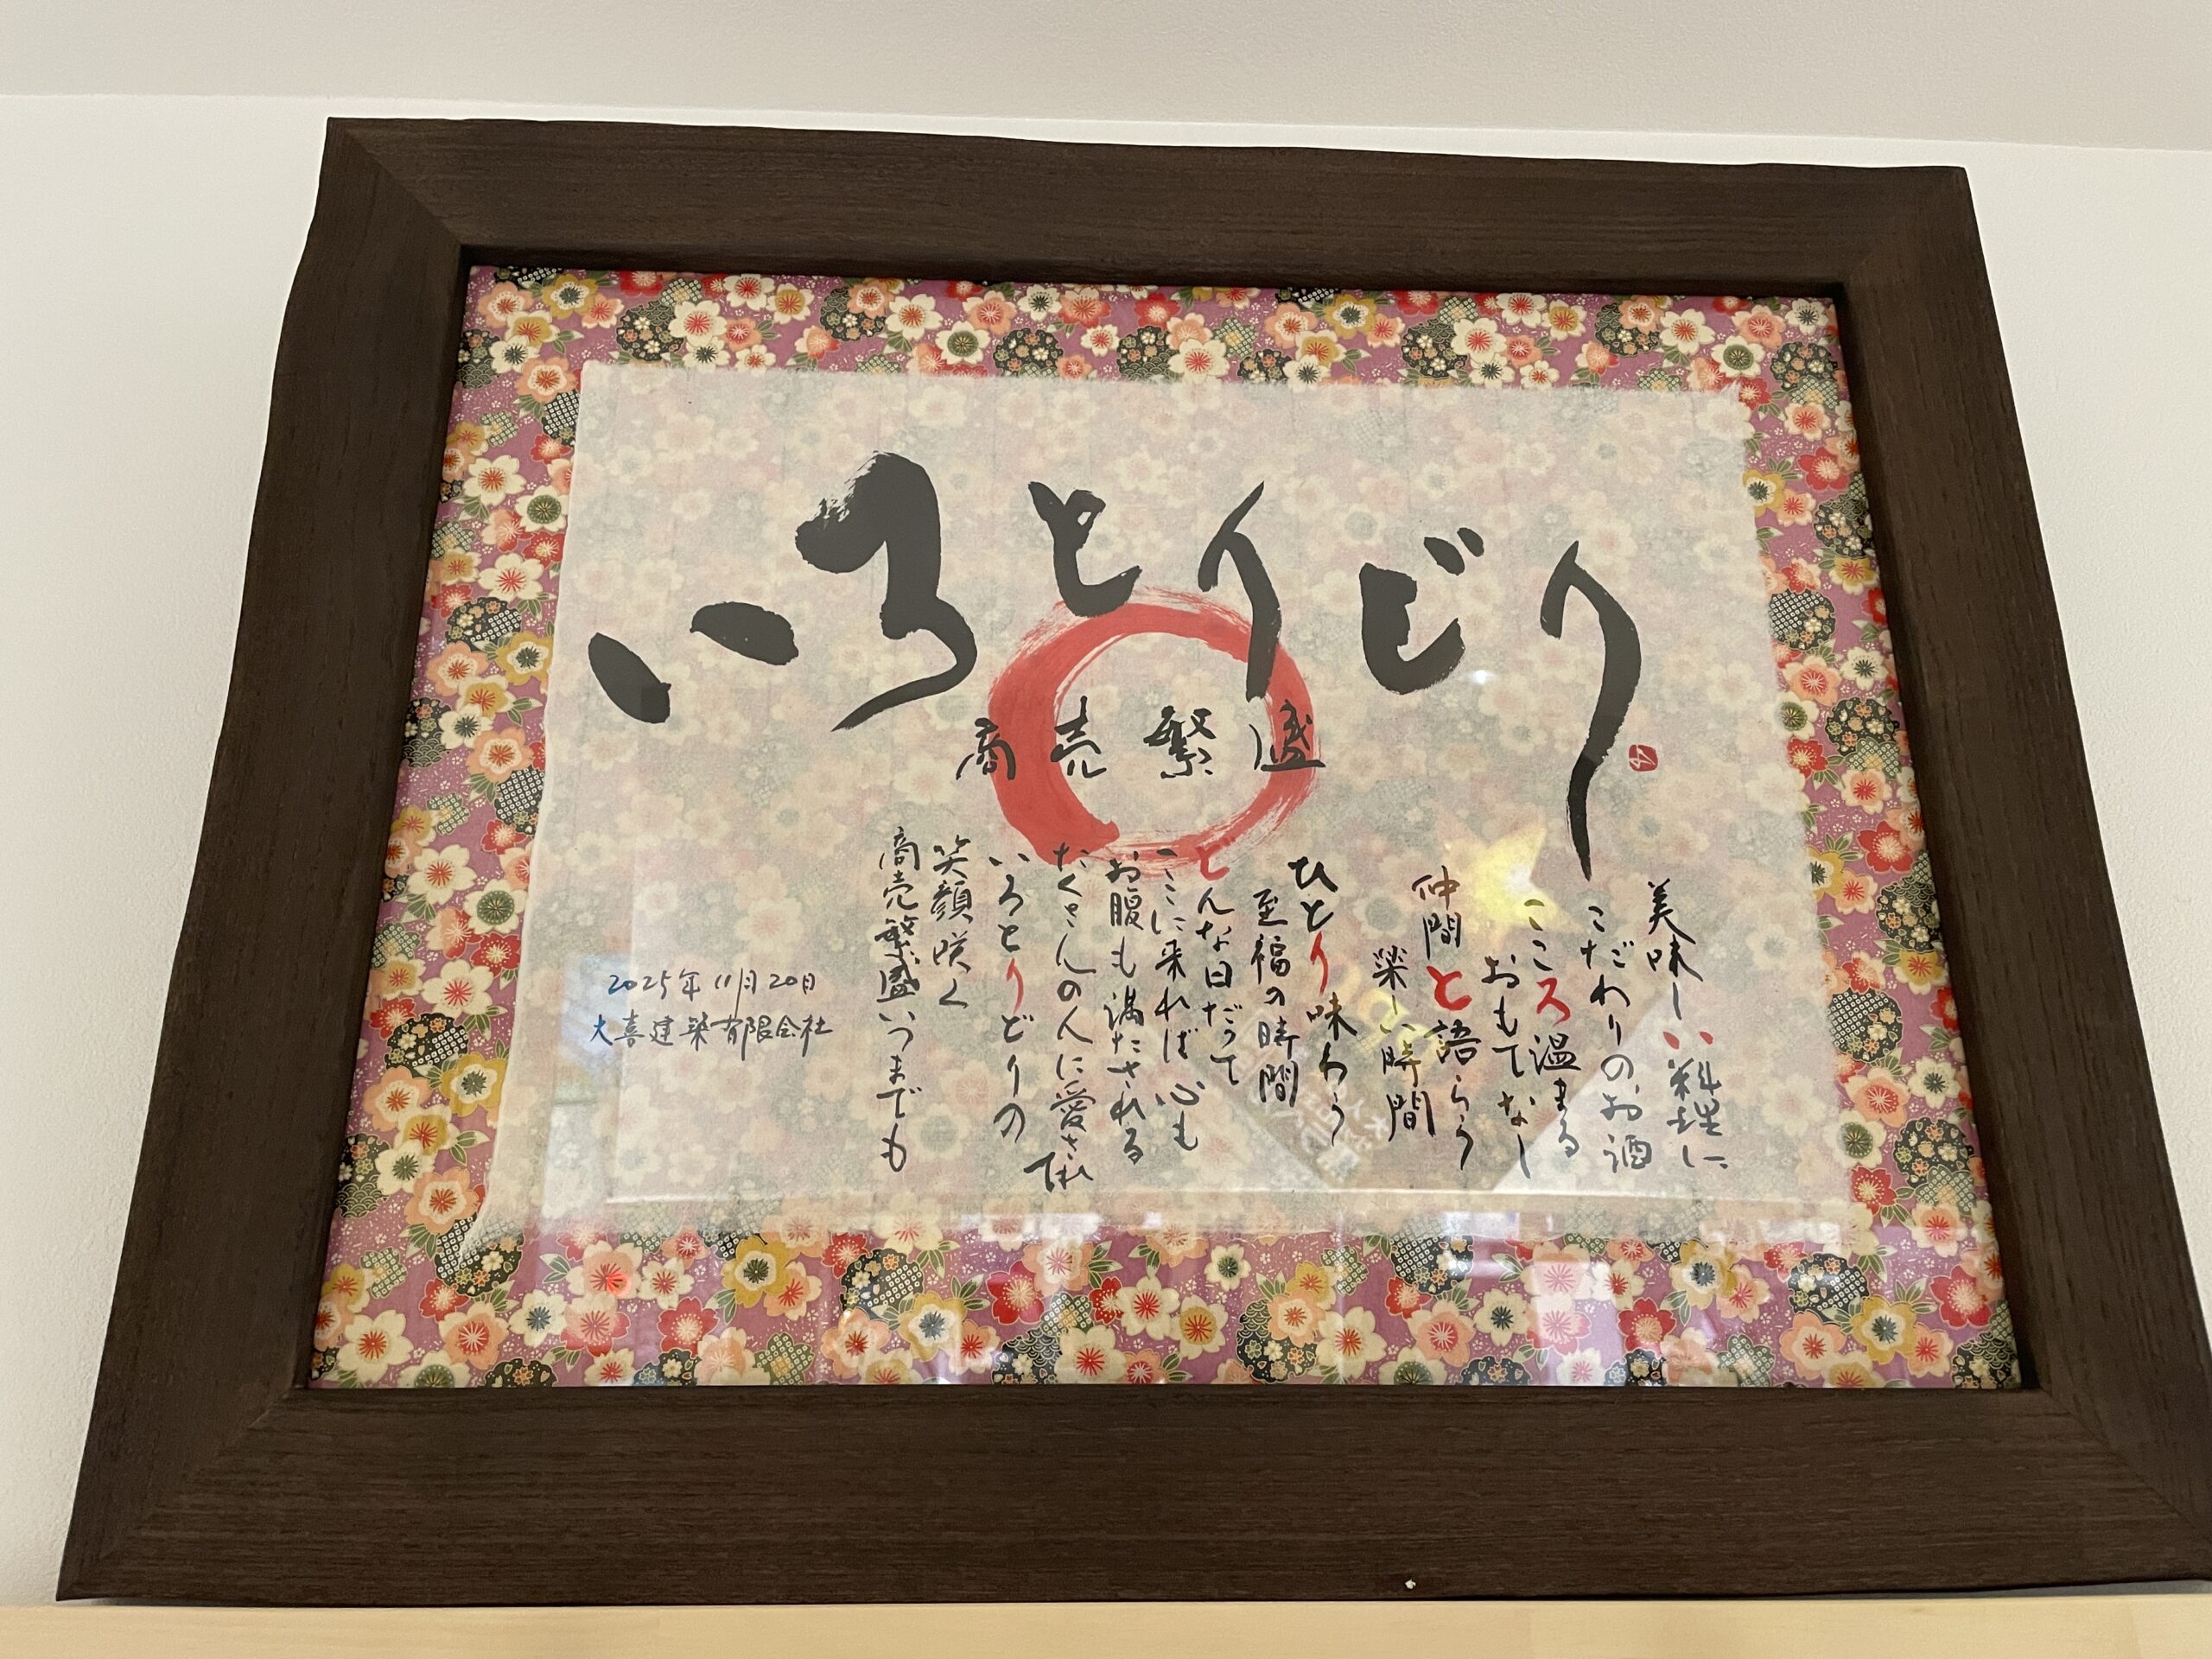 いろとりどり
商売繁盛
美味しい料理に
こだわりのお酒
こころ温まる
おもてなし
仲間と語らう
楽しい時間
ひとり味わう
至福の時間
どんな日だって
ここに来れば心も
お腹も満たされる
たくさんの人に愛されて
いろとりどりの
笑顔咲く
商売繁盛いつまでも
2025年11月20日
大喜建築有限会社